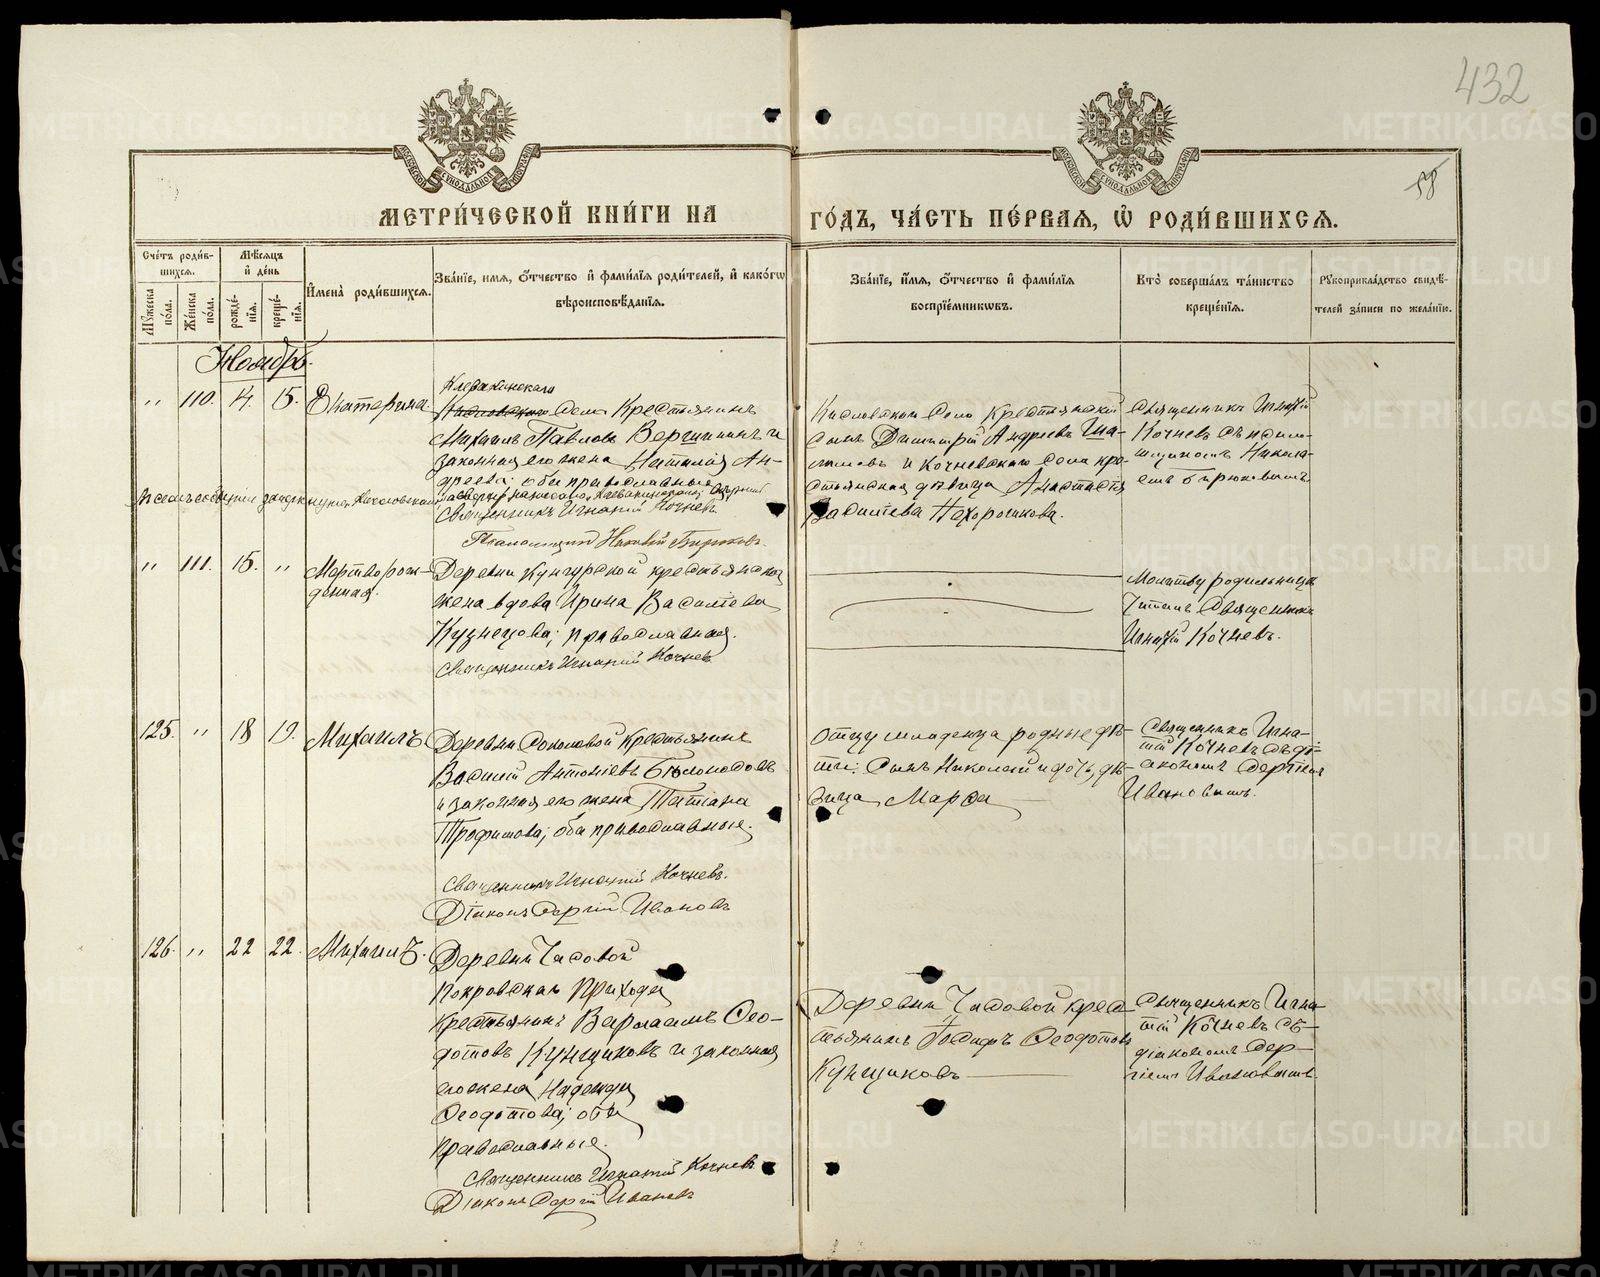 432
58
МЕТРИ́ЧЕСКОЙ КНИ́ГИ НА
ГО́ДЪ, ЧА́СТЬ ПЕ́РВАЯ, Ѡ҆ РОДИ́ВШИХСЯ.
Сче́тъ роди́в-
шихся.
Мѣ́сяцъ
и҆ де́нь
Му́жеска
по́ла.
Же́нска
по́ла.
рожде́-
нїя.
креще́-
нїя.
И҆мена̀ роди́вшихся.
Зва́нїе, и҆мя, ѻ҆́тчество и҆ фами́лїя роди́телей, и҆ како́гѡ
вѣроисповѣ́данїя.
Зва́нїе, и҆́мя, ѻ҆́тчество и҆ фами́лїя
воспрїе́мникѡвъ.
Кто̀ соверша́лъ та́инство
креще́нїя.
Рꙋкоприкла́дство свидѣ́-
телей за́писи по жела́нїю.
Ноябрь.
„ 110. 14. 15. Екатерина
Клевакинскаго
Кисловскаго Села Крестьянинъ
Михаилъ Павловъ Вершининъ и
законная его жена Наталия Ан-
дреева; оба православные
Священникъ Игнатий Кочневъ
Псаломщикъ Николай Бирюковъ.
Кисловскаго Села Крестьянский
сынъ Димитрий Андреевъ Ша-
и Кочневскаго села кре-
стьянская девица Анастасия
Василиева Нехорошкова.
Священникъ Игнатий
Кочневъ съ псалом-
щикомъ Никола-
емъ Бирюковымъ.
„ 111. 15. „ Мертворож-
денная.
Деревни Кунгурской крестьянская
жена вдова Ирина Василиева
Кузнецова; православная.
Священникъ Игнатий Кочневъ
Молитву родильнице
Читалъ Священникъ
Игнатий Кочневъ.
125. „ 18 19. Михаилъ
Деревни Соколовой Крестьянинъ
Василий Антониевъ Белоносовъ
и законная его жена Татиана
Трофимова; оба православные.
Священникъ Игнатий Кочневъ.
Диаконъ Сергий Ивановъ
Отцу младенца родные дѣ-
ти: сынъ Николай и дочь, дѣ-
вица Марѳа
Священникъ Игна-
тий Кочневъ съ ди-
акономъ Сергиемъ
Ивановымъ.
126. „ 22 22. Михаилъ.
Деревни Часовой
Покровскаго Прихода
Крестьянинъ Варлаамъ Ѳео-
дотовъ Кунщиковъ и законная
его жена Надежда
Ѳеодотова; оба
православные.
Священникъ Игнатий Кочневъ
Диаконъ Сергий Ивановъ
Деревни Часовой крес-
тьянинъ Ѳеодотовъ
Кунщиковъ
Священникъ Игна-
тий Кочневъ съ
диакономъ Сер-
гиемъ Ивановымъ.
METRIKI.GASO-URAL.RU